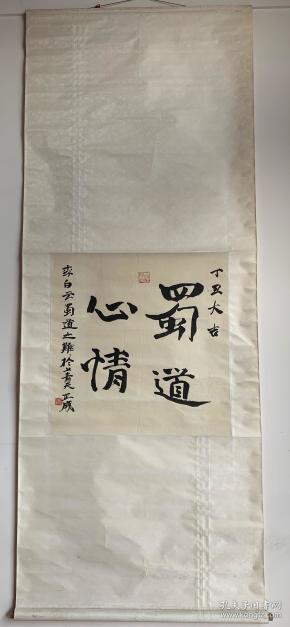 丁丑大吉
蜀道
心情
李白云蜀道之难於上青天 正成
孔夫子旧书网